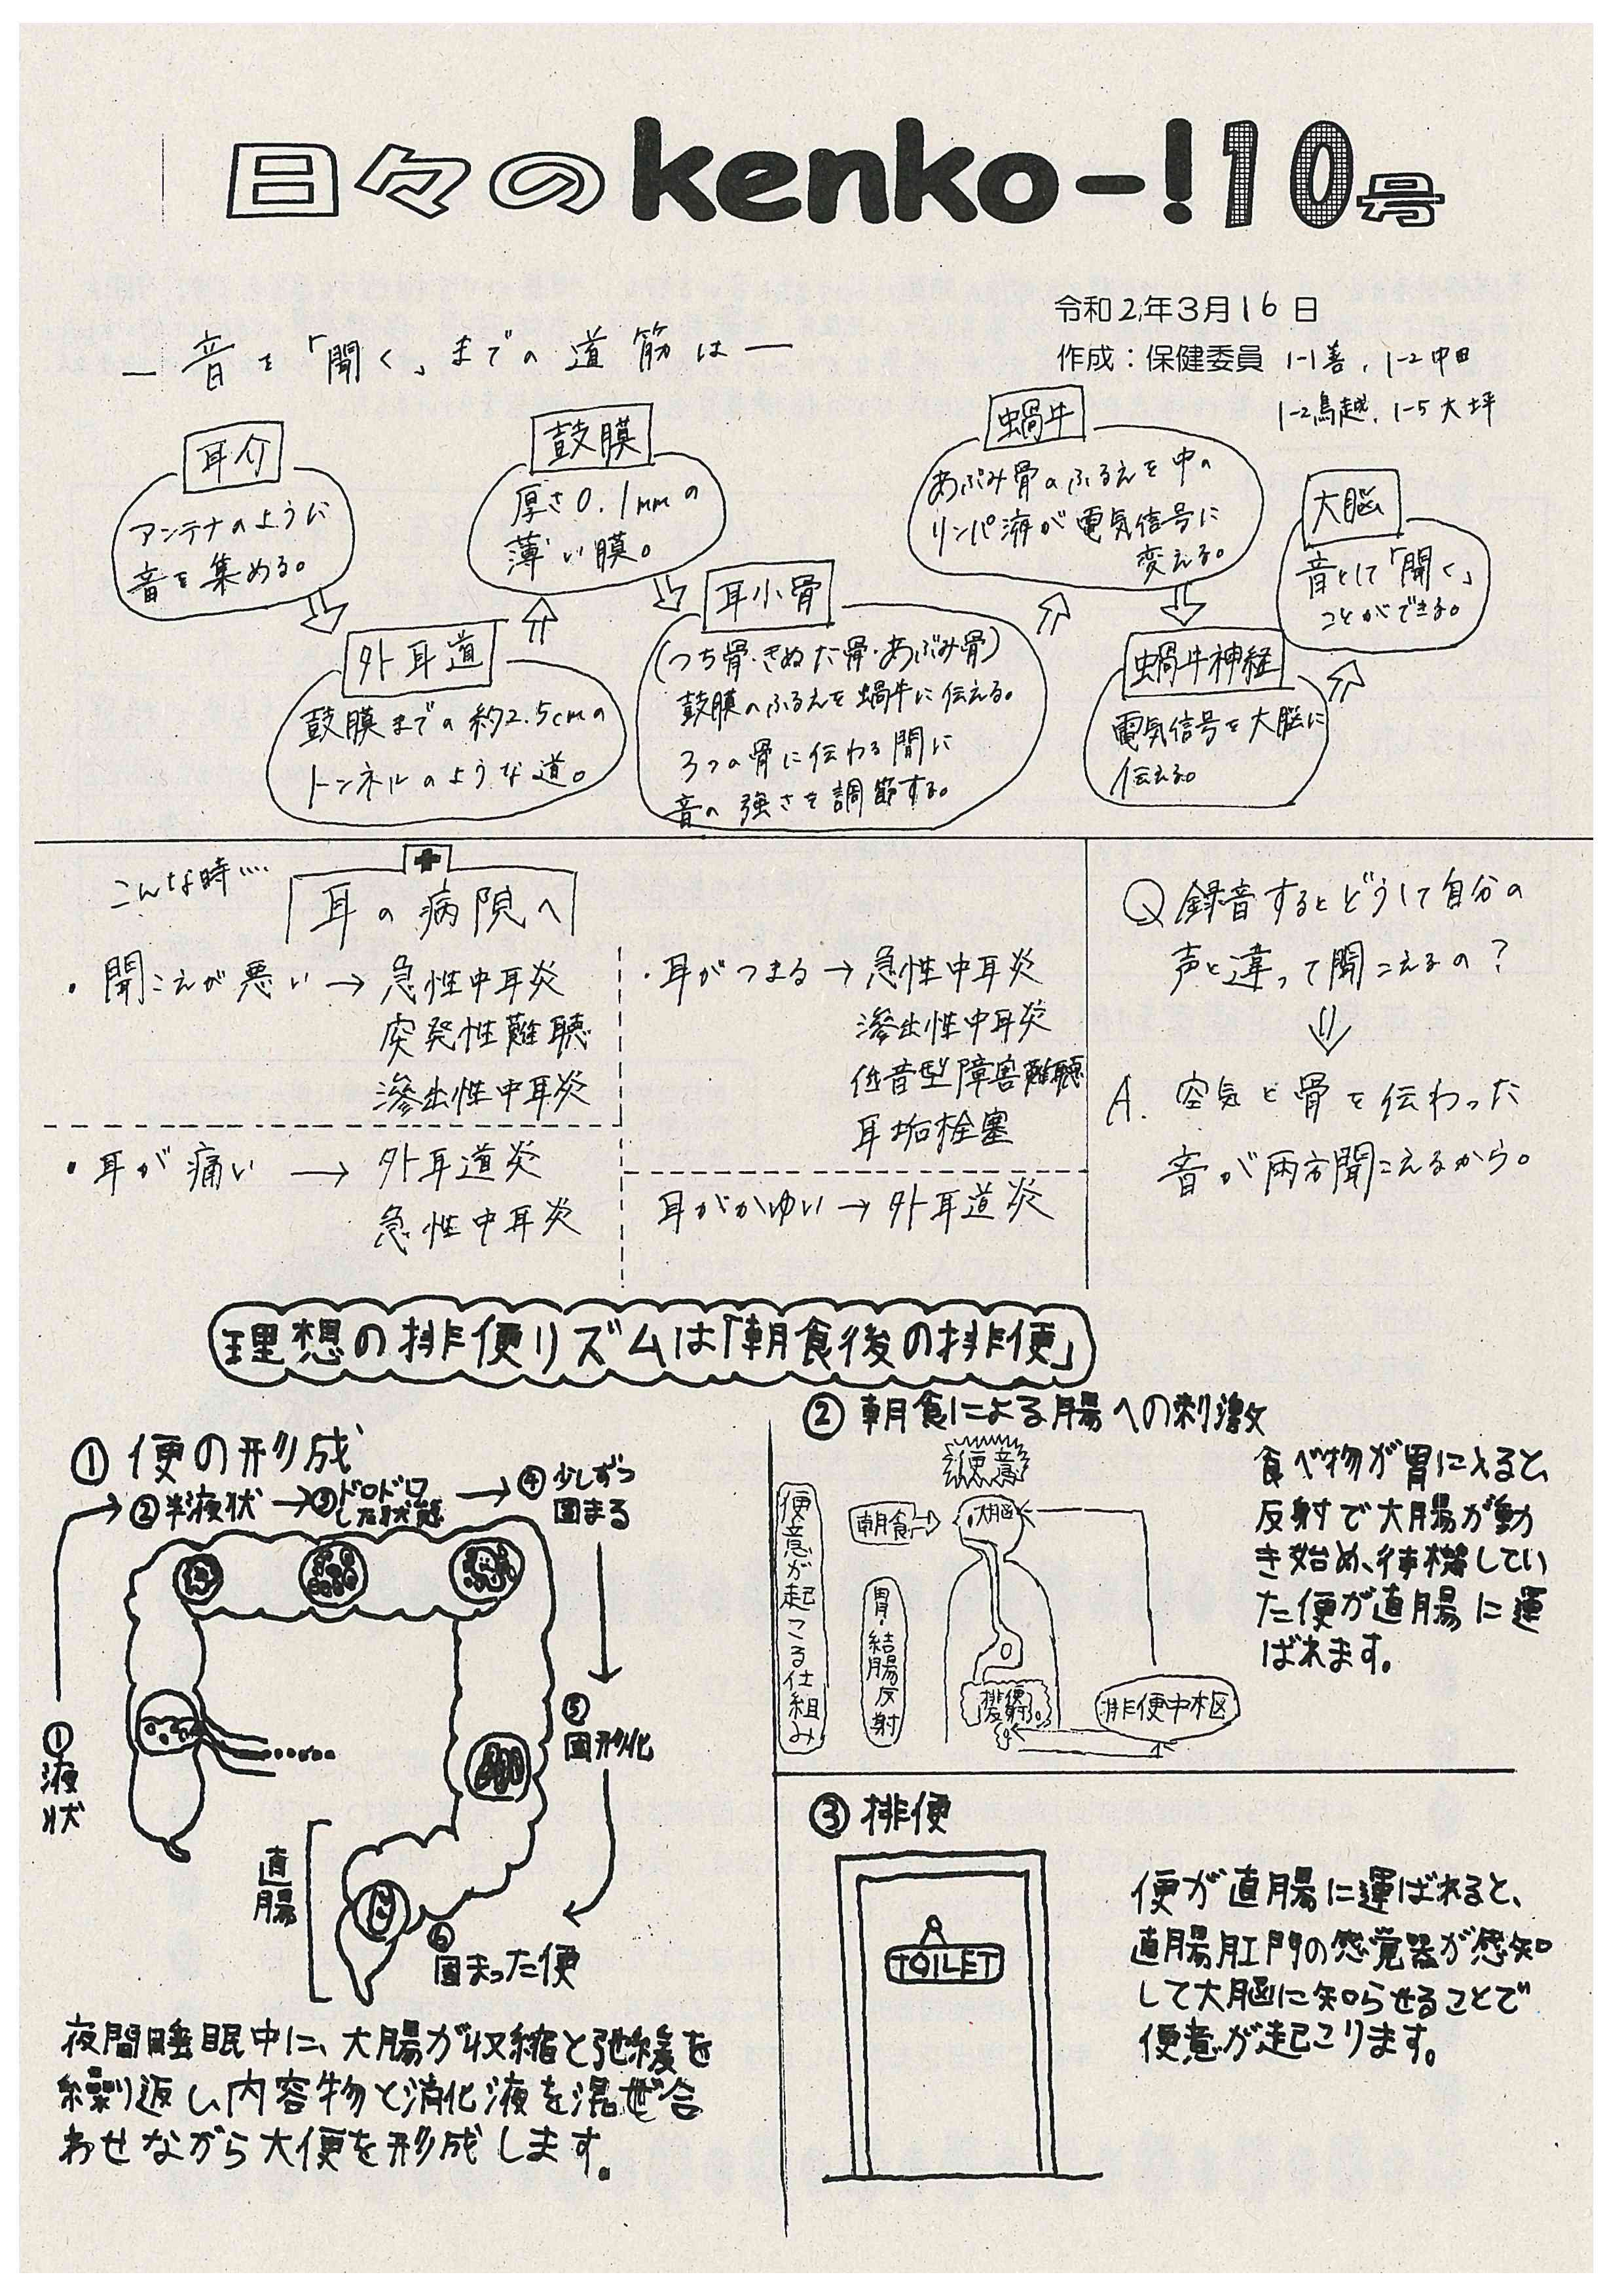 日々のkenko-!10号
令和2年3月16日
作成：保健委員 1-1善, 1-2中田
1-2鳥越, 1-5大坪
―音を「聞く」までの道筋は―
耳介
アンテナのように
音を集める。
外耳道
鼓膜までの約2.5cmの
トンネルのような道。
鼓膜
厚さ0.1mmの
薄い膜。
耳小骨
(つち骨・きぬた骨・あぶみ骨)
鼓膜のふるえを蝸牛に伝える。
3つの骨に伝わる間に
音の強さを調節する。
蝸牛
あぶみ骨のふるえを中の
リンパ液が電気信号に
変える。
蝸牛神経
電気信号を大脳に
伝える。
大脳
音として「聞く」
ことができる。
こんな時…
耳の病院へ
・聞こえが悪い→急性中耳炎
突発性難聴
滲出性中耳炎
・耳が痛い→外耳道炎
急性中耳炎
・耳がつまる→急性中耳炎
滲出性中耳炎
低音型障害難聴
耳垢栓塞
耳がかゆい→外耳道炎
Q 録音するとどうして自分の
声と違って聞こえるの？
A. 空気と骨を伝わった
音が両方聞こえるから。
理想の排便リズムは「朝食後の排便」
① 便の形成
①液状
②半液状→③ドロドロ
した状態
→④少しずつ
固まる
⑤
固形化
直腸
⑥
固まった便
夜間睡眠中に、大腸が収縮と弛緩を
繰り返し内容物と消化液を混ぜ合
わせながら大便を形成します。
② 朝食による腸への刺激
便意が起こる仕組み
便意
朝食
大脳
胃・結腸反射
排便
反射。
排便中枢
食べ物が胃に入ると、
反射で大腸が動
き始め、待機してい
た便が直腸に運
ばれます。
③ 排便
TOILET
便が直腸に運ばれると、
直腸肛門の感覚器が感知
して大脳に知らせることで
便意が起こります。